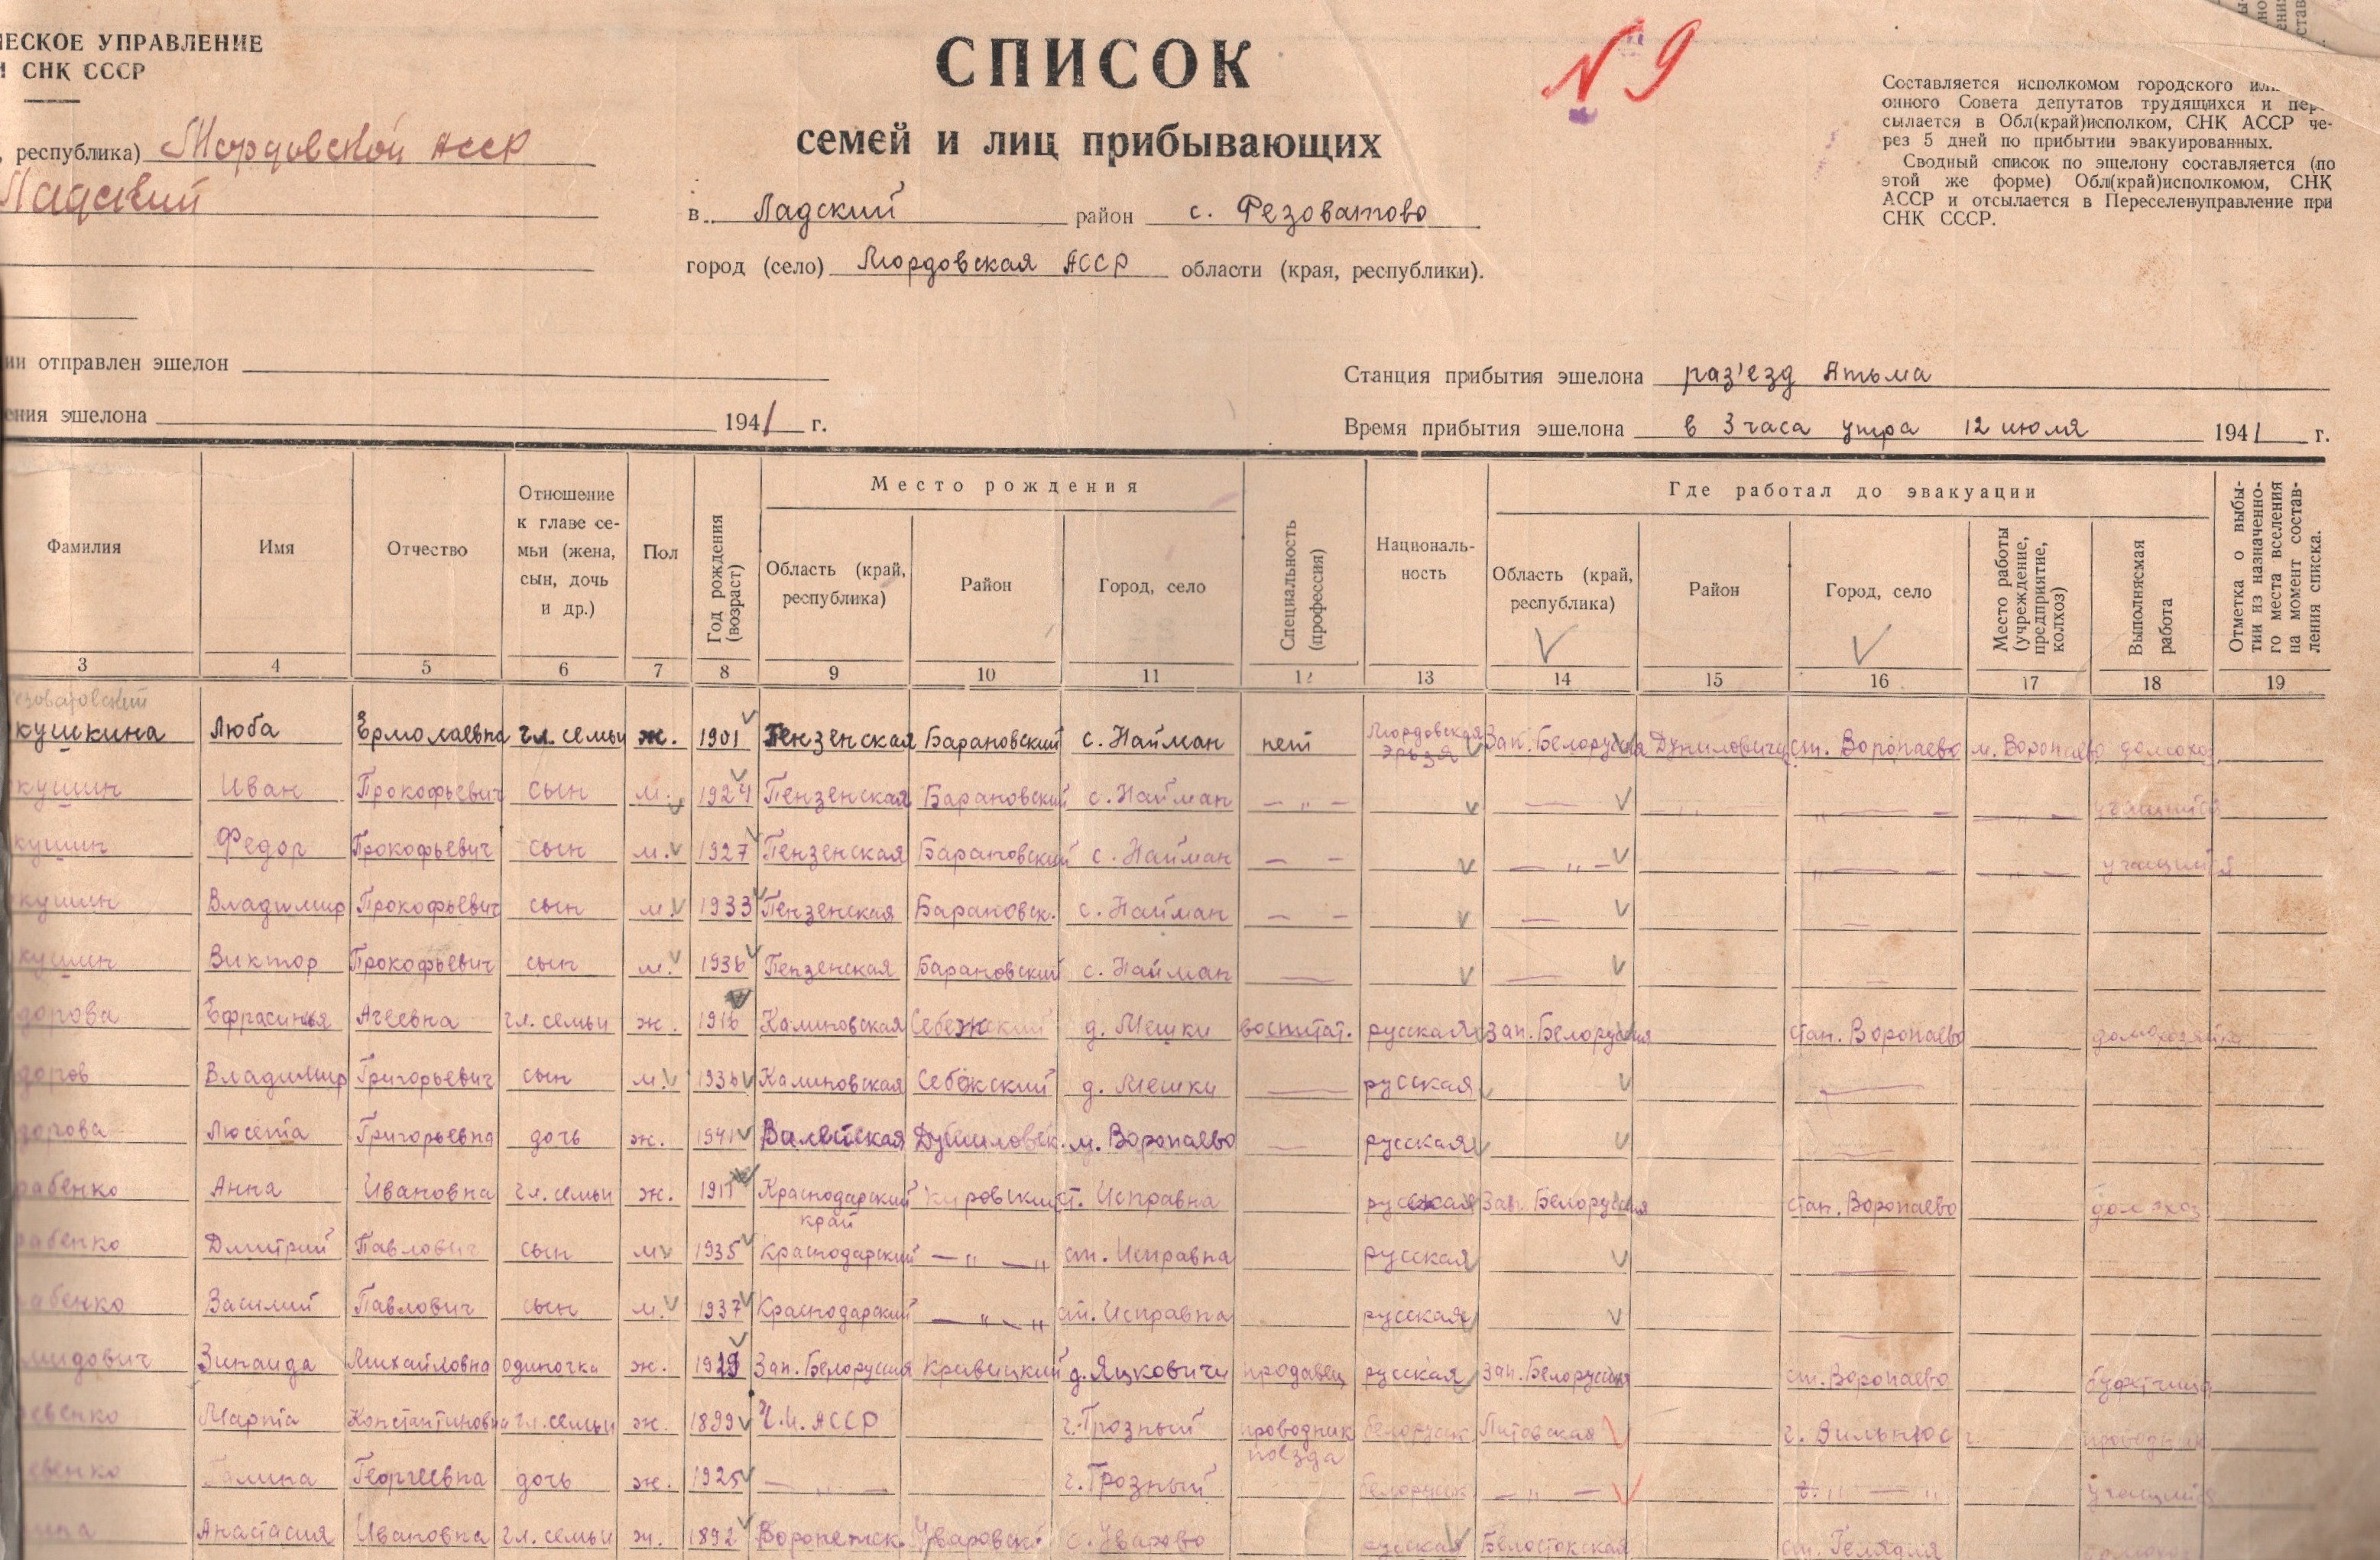 УПРАВЛЕНИЕ
СНК СССР
республика) Мордовской АССР
Ладский
СПИСОК
семей и лиц прибывающих
в Ладский район с. Резоватово
город (село) Мордовская АССР области (края, республики).
N 9
Составляется исполкомом городского
онного Совета депутатов трудящихся и
сылается в Обл(край)исполком, СНК АССР че-
рез 5 дней по прибытии эвакуированных.
Сводный список по эшелону составляется (по
этой же форме) Обл(край)исполкомом, СНК
АССР и отсылается в Переселенуправление при
СНК СССР.
отправлен эшелон
эшелона 1941 г.
Станция прибытия эшелона раз'езд Атьма
Время прибытия эшелона в 3 часа утра 12 июля 1941 г.
Фамилия Имя Отчество Отношение к главе се- мьи (жена, сын, дочь и др.) Пол Год рождения (возраст) Место рождения Область (край, республика) Район Город, село Специальность (профессия) Националь- ность Где работал до эвакуации Область (край, республика) Район Город, село Место работы (учреждение, предприятие, колхоз) Выполняемая работа Отметка о выбы- тии из назначенно- го места вселения на момент состав- ления списка.
3 4 5 6 7 8 9 10 11 12 13 14 15 16 17 18 19
кушкина Люба Ермолаевна гл. семьи ж. 1901 Пензенская Барановский с. Найман нет Мордовская эрьзя Зап. Белоруссия Дуниловичи ст. Воропаево м. Воропаево домохоз.
кушин Иван Прокофьевич сын м. 1924 Пензенская Барановский с. Найман — " — учащийся
кушин Федор Прокофьевич сын м. 1927 Пензенская Барановский с. Найман — — — " — учащийся
кушин Владимир Прокофьевич сын м. 1933 Пензенская Барановск. с. Найман — —
кушин Виктор Прокофьевич сын м. 1936 Пензенская Барановский с. Найман —
дорова Ефрасинья Агеевна гл. семьи ж. 1916 Калиновская Себежский д. Мешки воспитат. русская Зап. Белоруссия стан. Воропаево домохозяйка
доров Владимир Григорьевич сын м. 1936 Калиновская Себежский д. Мешки — русская
дорова Люсета Григорьевна дочь ж. 1941 Вилейская м. Воропаево — русская
рабенко Анна Ивановна гл. семьи ж. Краснодарский край Кировский ст. Исправна русская Зап. Белоруссия стан. Воропаево домохоз
рабенко Дмитрий Павлович сын м 1935 Краснодарский — " — " ст. Исправна русская
рабенко Василий Павлович сын м. 1937 Краснодарский — " — " ст. Исправна русская
мидович Зинаида Михайловна одиночка ж. Зап. Белоруссия Кривицкий д. Яцковичи продавец русская Зап. Белоруссия ст. Воропаево буфетчица
евенко Марта Константиновна гл. семьи ж. 1899 Ч.И. АССР г. Грозный проводник поезда белорусск. Литовская г. Вильнюс проводник
евенко Галина Георгиевна дочь ж. 1925 — " — г. Грозный белорусск — " — учащийся
Анастасия Ивановна гл. семьи ж. 1892 Воронежск. Уваровск с. Уварово русская Белостокская